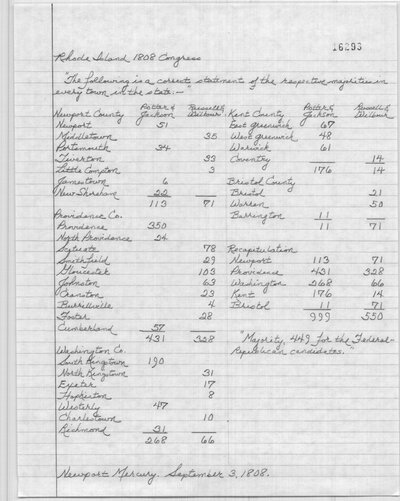 16293
Rhode Island 1808 Congress
"The following is a correct statement of the respective majorities in
every town in the state:—"
Newport County Potter & Jackson Russell & Wilbour
Newport 51
Middletown 35
Portsmouth 34
Tiverton 33
Little Compton 3
Jamestown 6
New Shoreham 22
113 71
Providence Co.
Providence 350
North Providence 24
Scituate 78
Smithfield 29
Gloucester 103
Johnston 63
Cranston 23
Burrellville 4
Foster 28
Cumberland 57
431 328
Washington Co.
South Kingstown 190
North Kingstown 31
Exeter 17
Hopkinton 8
Westerly 47
Charlestown 10
Richmond 31
268 66
Kent County Potter & Jackson Russell & Wilbour
East Greenwich 67
West Greenwich 48
Warwick 61
Coventry 14
176 14
Bristol County
Bristol 21
Warren 50
Barrington 11
11 71
Recapitulation
Newport 113 71
Providence 431 328
Washington 268 66
Kent 176 14
Bristol 11 71
999 550
"Majority, 449 for the Federal-
Republican candidates."
Newport Mercury. September 3, 1808.